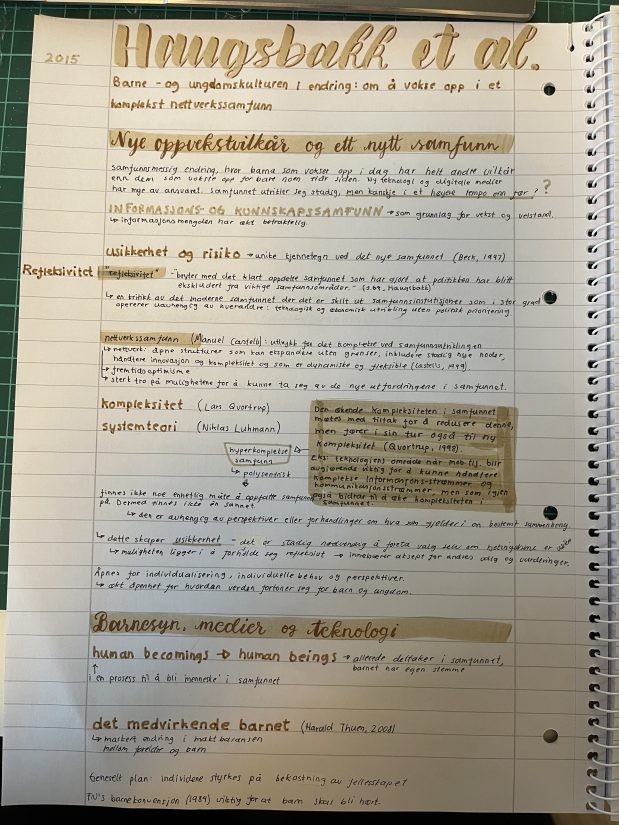 2015
Haugsbakk et al.
Barne- og ungdomskulturen i endring: om å vokse opp i et
komplekst nettverkssamfunn
Nye oppvekstvilkår og ett nytt samfunn
samfunnsmessig endring, hvor barna som vokser opp i dag har helt andre vilkår
enn dem som vokste opp for bare noen tiår siden. Ny teknologi og digitale medier
har mye av ansvaret. Samfunnet utvikler seg stadig, men kanskje i et høyere tempo enn før? ?
INFORMASJONS- OG KUNNSKAPSSAMFUNN → som grunnlag for vekst og velstand.
↳ informasjonsmengden har økt betraktelig.
usikkerhet og risiko → unike kjennetegn ved det nye samfunnet (Beck, 1997)
Refleksivitet
"refleksivitet" - "bryter med det klart oppdelte samfunnet som har gjort at politikken har blitt
ekskludert fra viktige samfunnsområder." (s.09, Haugsbakk)
↳ en kritikk av det moderne samfunnet der det er skilt ut samfunnsinstitusjoner som i stor grad
opererer uavhengig av hverandre: teknologisk og økonomisk utvikling uten politisk prioritering.
nettverkssamfunn (Manuel Castells): uttrykk for det komplekse ved samfunnsutviklingen
↳ nettverk: åpne strukturer som kan ekspandere uten grenser, inkludere stadig nye noder,
håndtere innovasjon og kompleksitet og som er dynamiske og fleksible (Castells, 1999).
→ fremtidsoptimisme
→ sterk tro på mulighetene for å kunne ta seg av de nye utfordringene i samfunnet.
kompleksitet (Lars Qvortrup)
systemteori (Niklas Luhmann)
Den økende kompleksiteten i samfunnet
møtes med tiltak for å redusere denne,
men fører i sin tur også til ny
kompleksitet (Qvortrup, 1998).
Eks: teknologiens område når mob.tlf. blir
avgjørende viktig for å kunne håndtere
komplekse informasjons-strømmer og
kommunikasjonsstrømmer, men som igjen
også bidrar til å øke kompleksiteten i
samfunnet.
hyperkomplekse
samfunn
↳ polysentrisk
finnes ikke noe enhetlig måte å oppfatte samfunnet
på. Dermed finnes ikke én sannhet.
↳ den er avhengig av perspektiver eller forhandlinger om hva som gjelder i en bestemt sammenheng.
↳ dette skaper usikkerhet - det er stadig nødvendig å foreta valg selv om betingelsene er
↳ muligheten ligger i å forholde seg refleksivt → innebærer aksept for andres valg og vurderinger.
Åpnes for individualisering, individuelle behov og perspektiver.
↳ økt åpenhet for hvordan verden fortoner seg for barn og ungdom.
Barnesyn, medier og teknologi
human becomings → human beings → allerede deltaker i samfunnet,
barnet har egen stemme
↑
i en prosess til å bli 'menneske' i samfunnet
det medvirkende barnet (Harald Thuen, 2008)
↳ markert endring i maktbalansen
mellom forelder og barn
Generelt plan: individene styrkes på bekostning av fellesskapet
FN's barnekonvensjon (1989) viktig for at barn skal bli hørt.